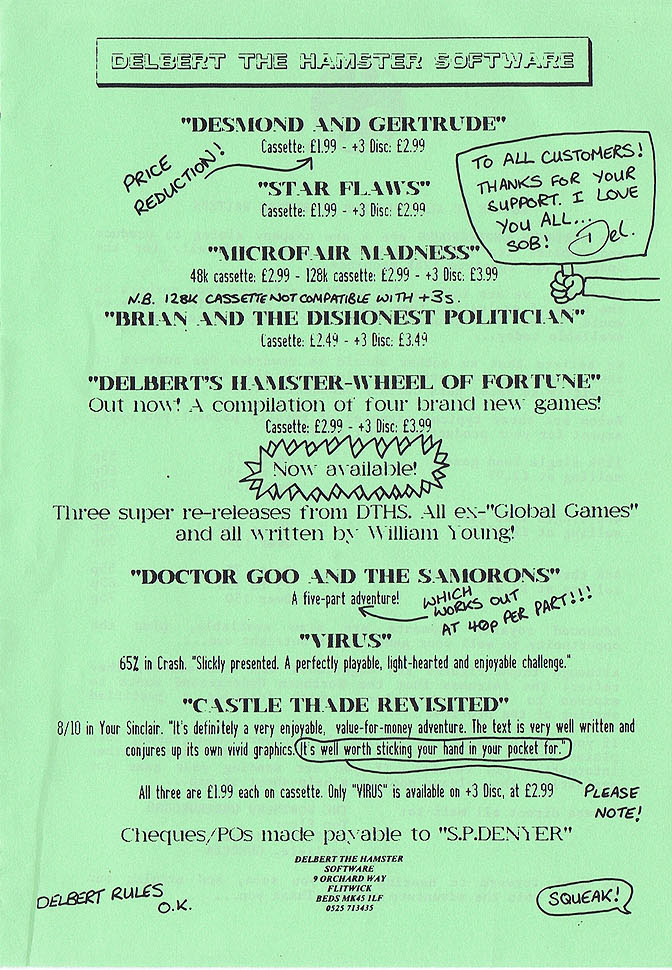 DELBERT THE HAMSTER SOFTWARE
"DESMOND AND GERTRUDE"
Cassette: £1.99 - +3 Disc: £2.99
PRICE
REDUCTION!
"STAR FLAWS"
Cassette: £1.99 - +3 Disc: £2.99
TO ALL CUSTOMERS!
THANKS FOR YOUR
SUPPORT. I LOVE
YOU ALL...
SOB! Del.
"MICROFAIR MADNESS"
48k cassette: £2.99 - 128k cassette: £2.99 - +3 Disc: £3.99
N.B. 128K CASSETTE NOT COMPATIBLE WITH +3s.
"BRIAN AND THE DISHONEST POLITICIAN"
Cassette: £2.49 - +3 Disc: £3.49
"DELBERT'S HAMSTER-WHEEL OF FORTUNE"
Out now! A compilation of four brand new games!
Cassette: £2.99 - +3 Disc: £3.99
Now available!
Three super re-releases from DTHS. All ex-"Global Games"
and all written by William Young!
"DOCTOR GOO AND THE SAMORONS"
A five-part adventure!
WHICH
WORKS OUT
AT 40p PER PART!!!
"VIRUS"
65% in Crash. "Slickly presented. A perfectly playable, light-hearted and enjoyable challenge."
"CASTLE THADE REVISITED"
8/10 in Your Sinclair. "It's definitely a very enjoyable, value-for-money adventure. The text is very well written and
conjures up its own vivid graphics. It's well worth sticking your hand in your pocket for."
All three are £1.99 each on cassette. Only "VIRUS" is available on +3 Disc, at £2.99
PLEASE
NOTE!
Cheques/POs made payable to "S.P.DENYER"
DELBERT THE HAMSTER
SOFTWARE
9 ORCHARD WAY
FLITWICK
BEDS MK45 1LF
0525 713435
DELBERT RULES
O.K.
SQUEAK!